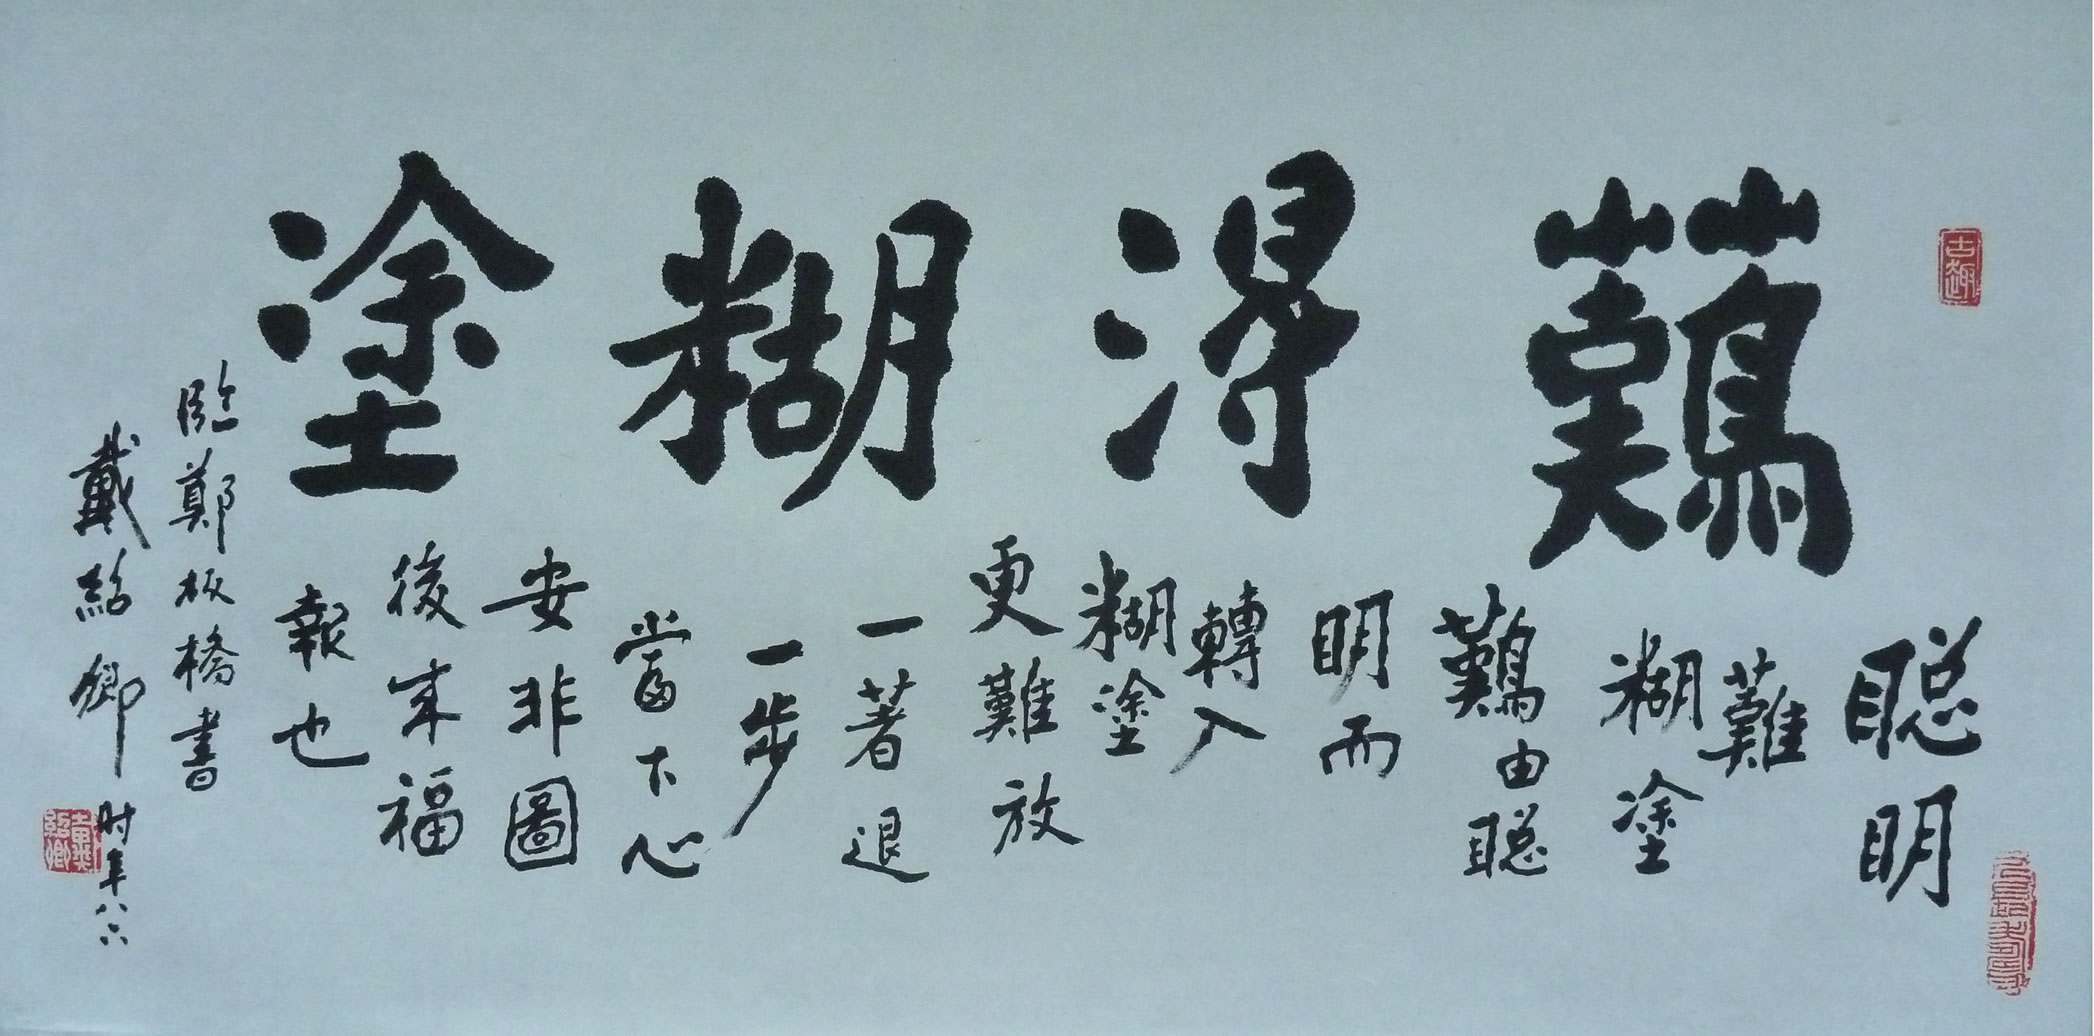 難淂糊塗
聰明
難
糊塗
難由聰
明而
轉入
糊塗
更難放
一著退
一步
當下心
安非圖
後來福
報也
臨鄭板橋書
戴紹卿
时年八六
古趣
戴紹卿